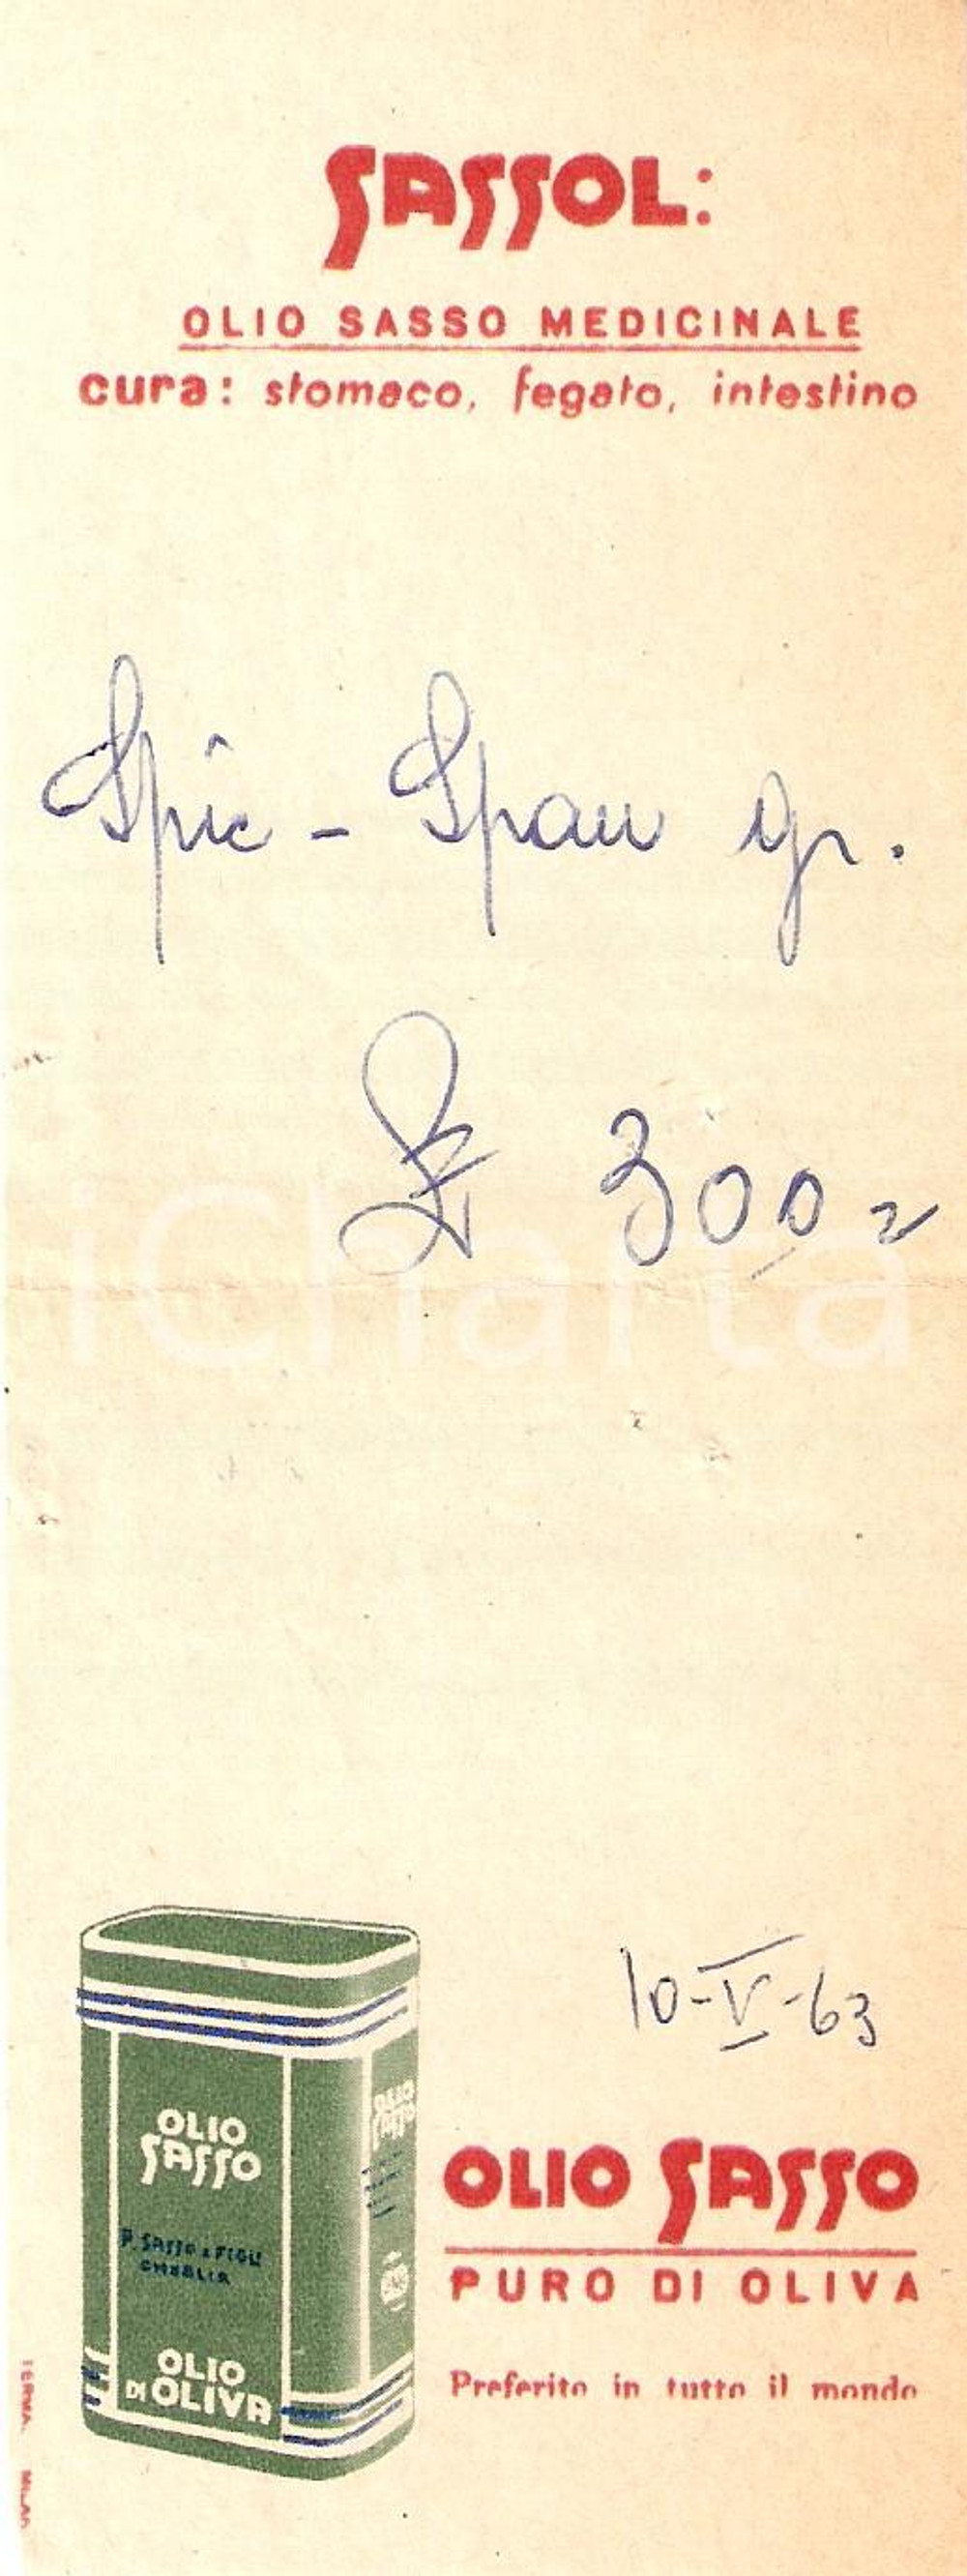 SASSOL:
OLIO SASSO MEDICINALE
cura: stomaco, fegato, intestino
Spic - Span gr.
£ 300
iCharta
10-V-63
OLIO
SASSO
OLIO
SASSO
P. SASSO & FIGLI
ONEGLIA
OLIO
DI OLIVA
OLIO SASSO
PURO DI OLIVA
Preferito in tutto il mondo